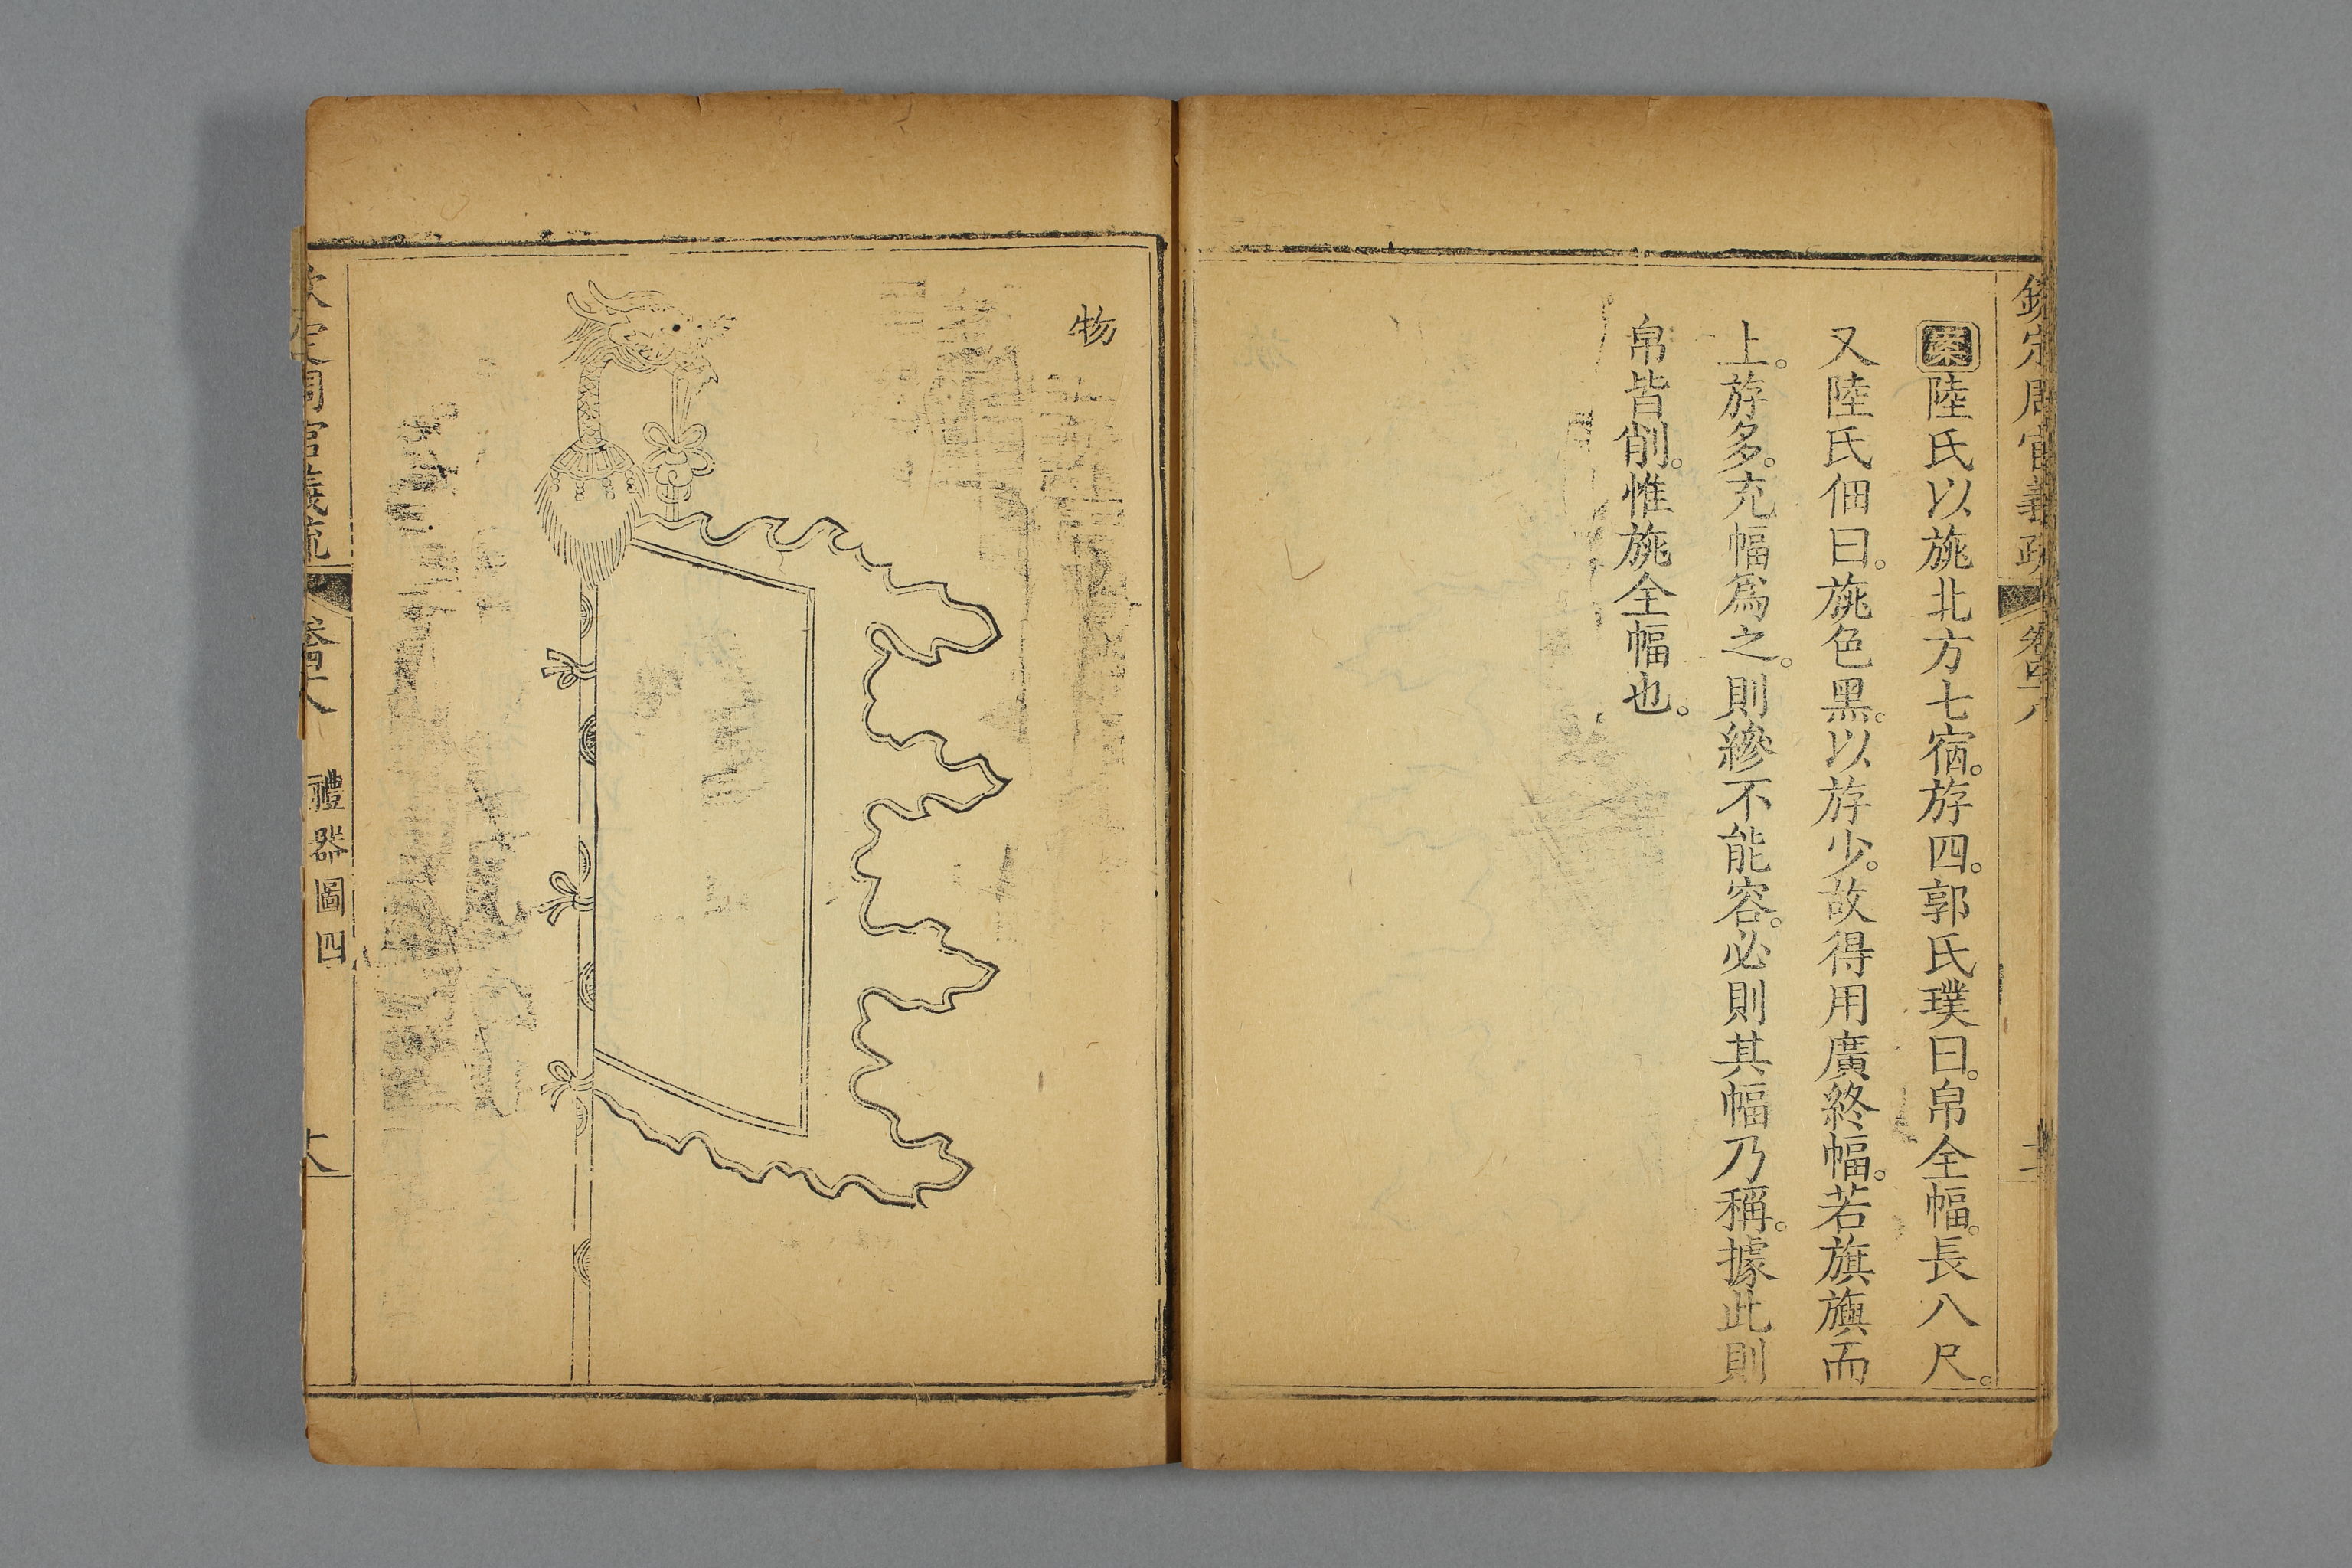 欽定周官義疏 卷四十八
案陸氏以旐北方七宿。斿四。郭氏璞曰。帛全幅。長八尺。
又陸氏佃曰。旐色黑。以斿少。故得用廣終幅。若旗旟而
上。斿多。充幅爲之。則縿不能容。必則其幅乃稱。據此則
帛皆削。惟旐全幅也。
物
欽定周官義疏 卷四十八 禮器圖四